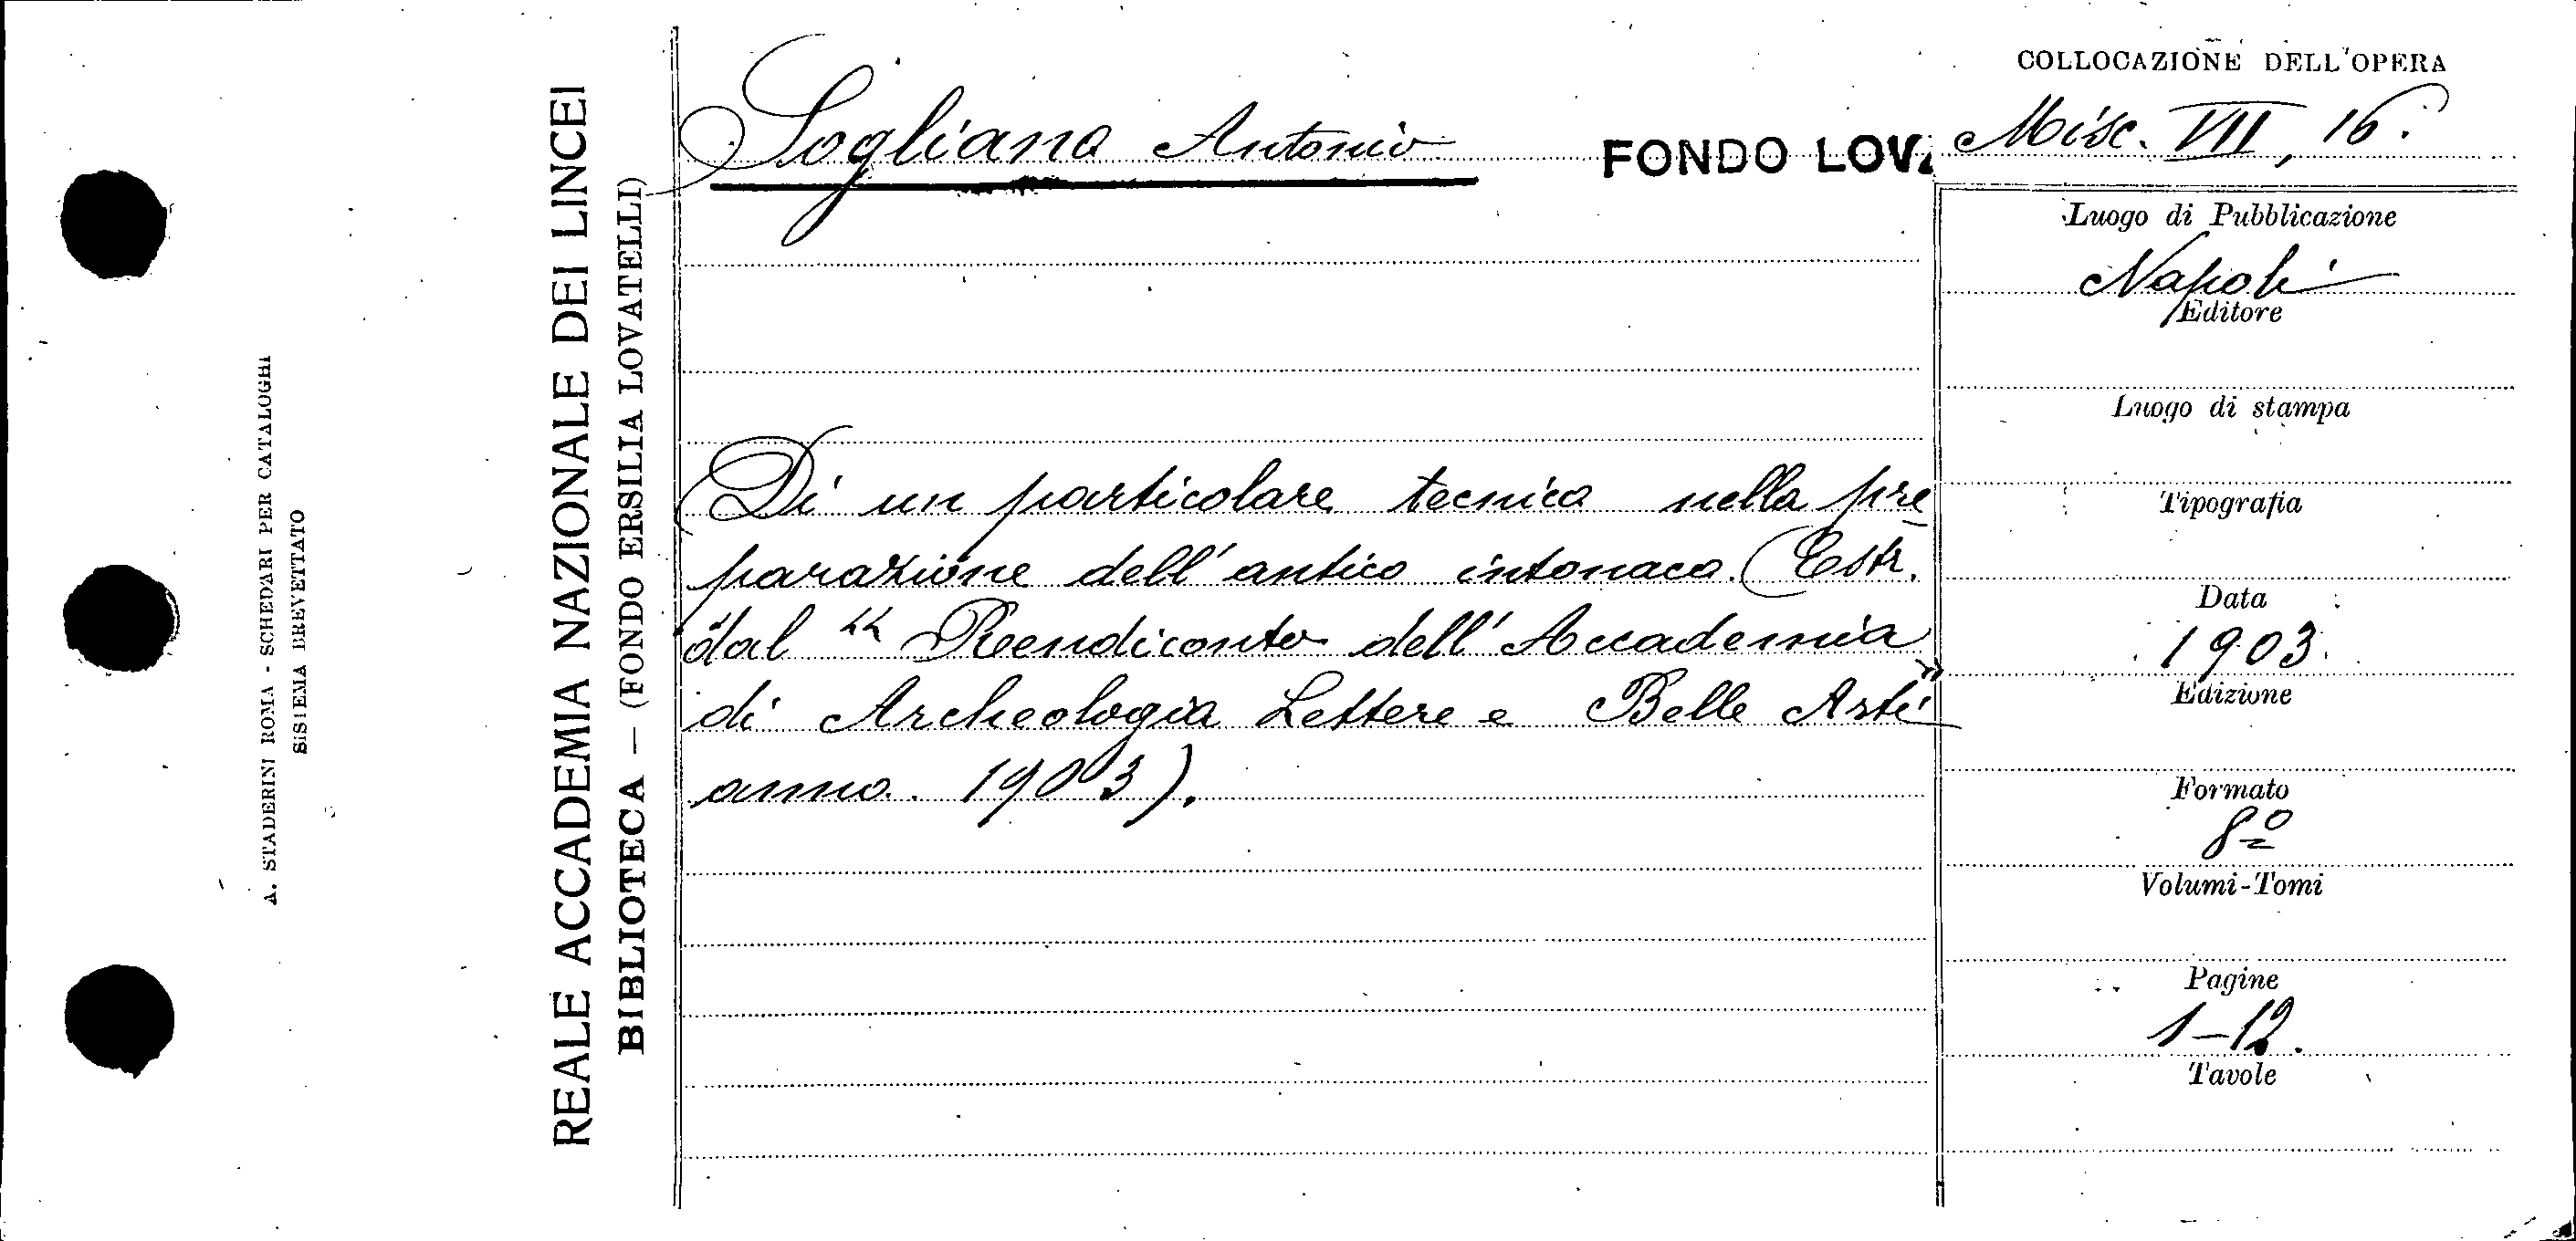 A. STADERINI ROMA - SCHEDARI PER CATALOGHI
SISTEMA BREVETTATO
REALE ACCADEMIA NAZIONALE DEI LINCEI
BIBLIOTECA — (FONDO ERSILIA LOVATELLI)
Sogliano Antonio
FONDO LOV.
Di un particolare tecnico nella pre
parazione dell'antico intonaco. (Estr.
dal " Rendiconto dell'Accademia
di Archeologia Lettere e Belle Arti"
anno 1903).
COLLOCAZIONE DELL'OPERA
Misc. VII, 16.
Luogo di Pubblicazione
Napoli
Editore
Luogo di stampa
Tipografia
Data
1903.
Edizione
Formato
8º
Volumi-Tomi
Pagine
1-12.
Tavole